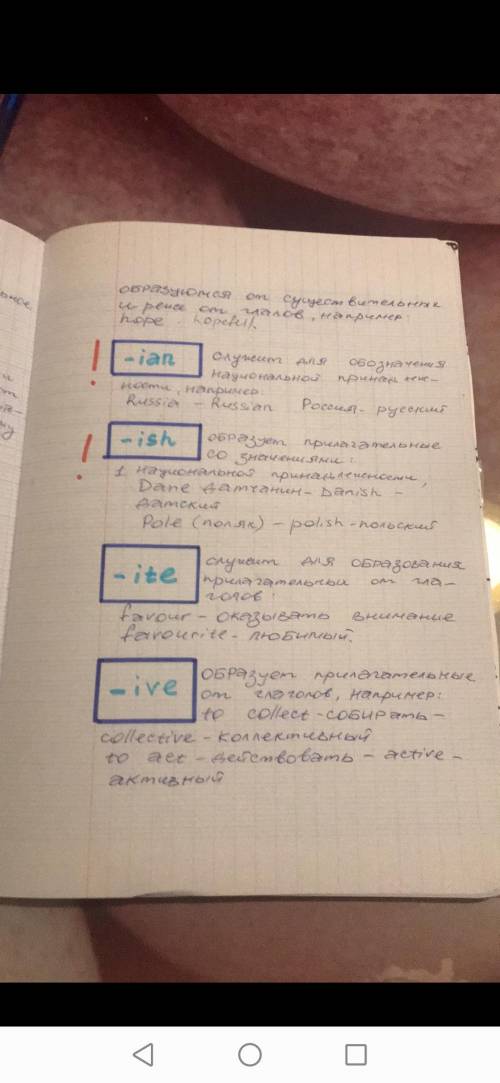 образуются от существительных
и реже от глалов, например:
hope - hopeful.
! -ian служит для обозначения
национальной принадлеж-
ности, например:
Russia - Russian Россия - русский
! -ish образует прилагательные
со значениями:
1. национальной принадлежности,
Dane датчанин - Danish -
датский
Pole (поляк) - polish - польский
-ite служит для образования
прилагательных от гла-
голов:
favour - оказывать внимание
favourite - любимый.
-ive образует прилагательные
от глаголов, например:
to collect - собирать -
collective - коллективный
to act - действовать - active -
активный